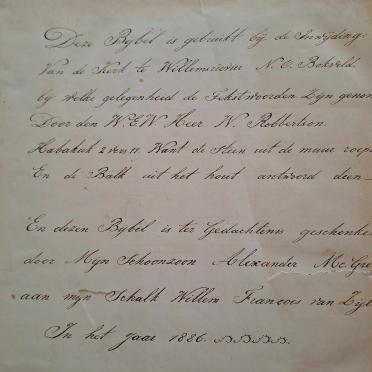 Deze Bybel is gebruikt bij de Inwijding:
Van de Kerk te Willemsrivier N. O. Bokveld.
bij welke gelegenheid de Tekstwoorden Zyn genom
Door den W.E.W Heer W. Robbertson.
Habakuk 2 vers 11. Want de Steen uit de muur roept
En de Balk uit het hout antwoord dien
En dezen Bybel is ter Gedachtenis geschenke
door Mijn Schoonzoon Alexander Mc. Gre
aan mijn Schalk Willem François van Zijl
In het jaar 1886.